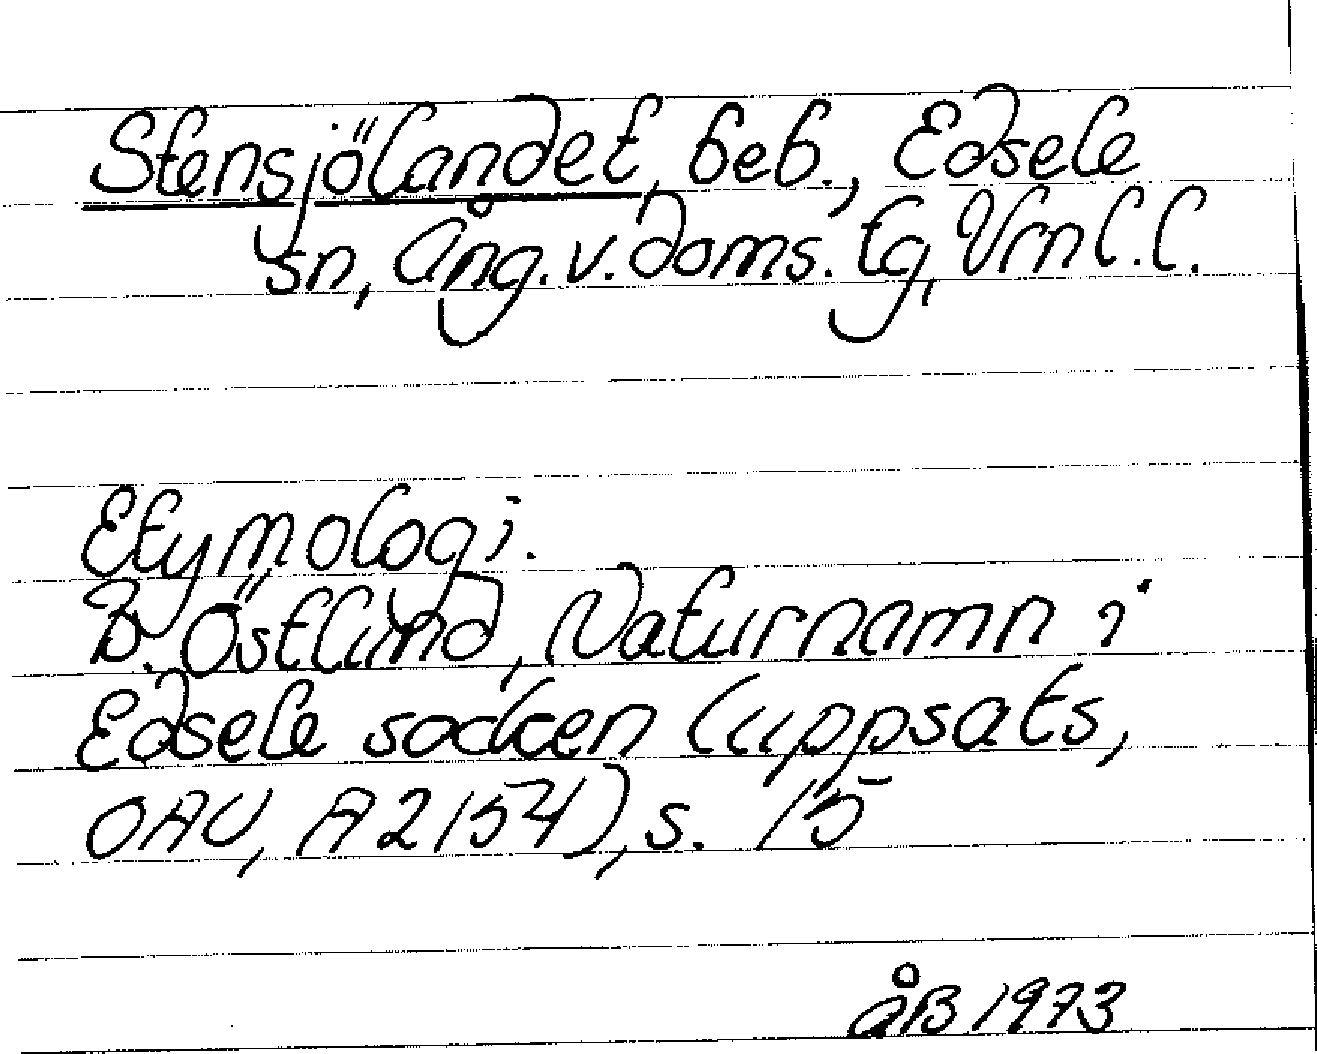 Stensjölandet, beb., Edsele
sn, Ång. v. doms. tg, Vrnl. l.
Etymologi.
B. Östlund, Naturnamn i
Edsele socken (uppsats,
OAU, A 2154), s. 15
åB 1973